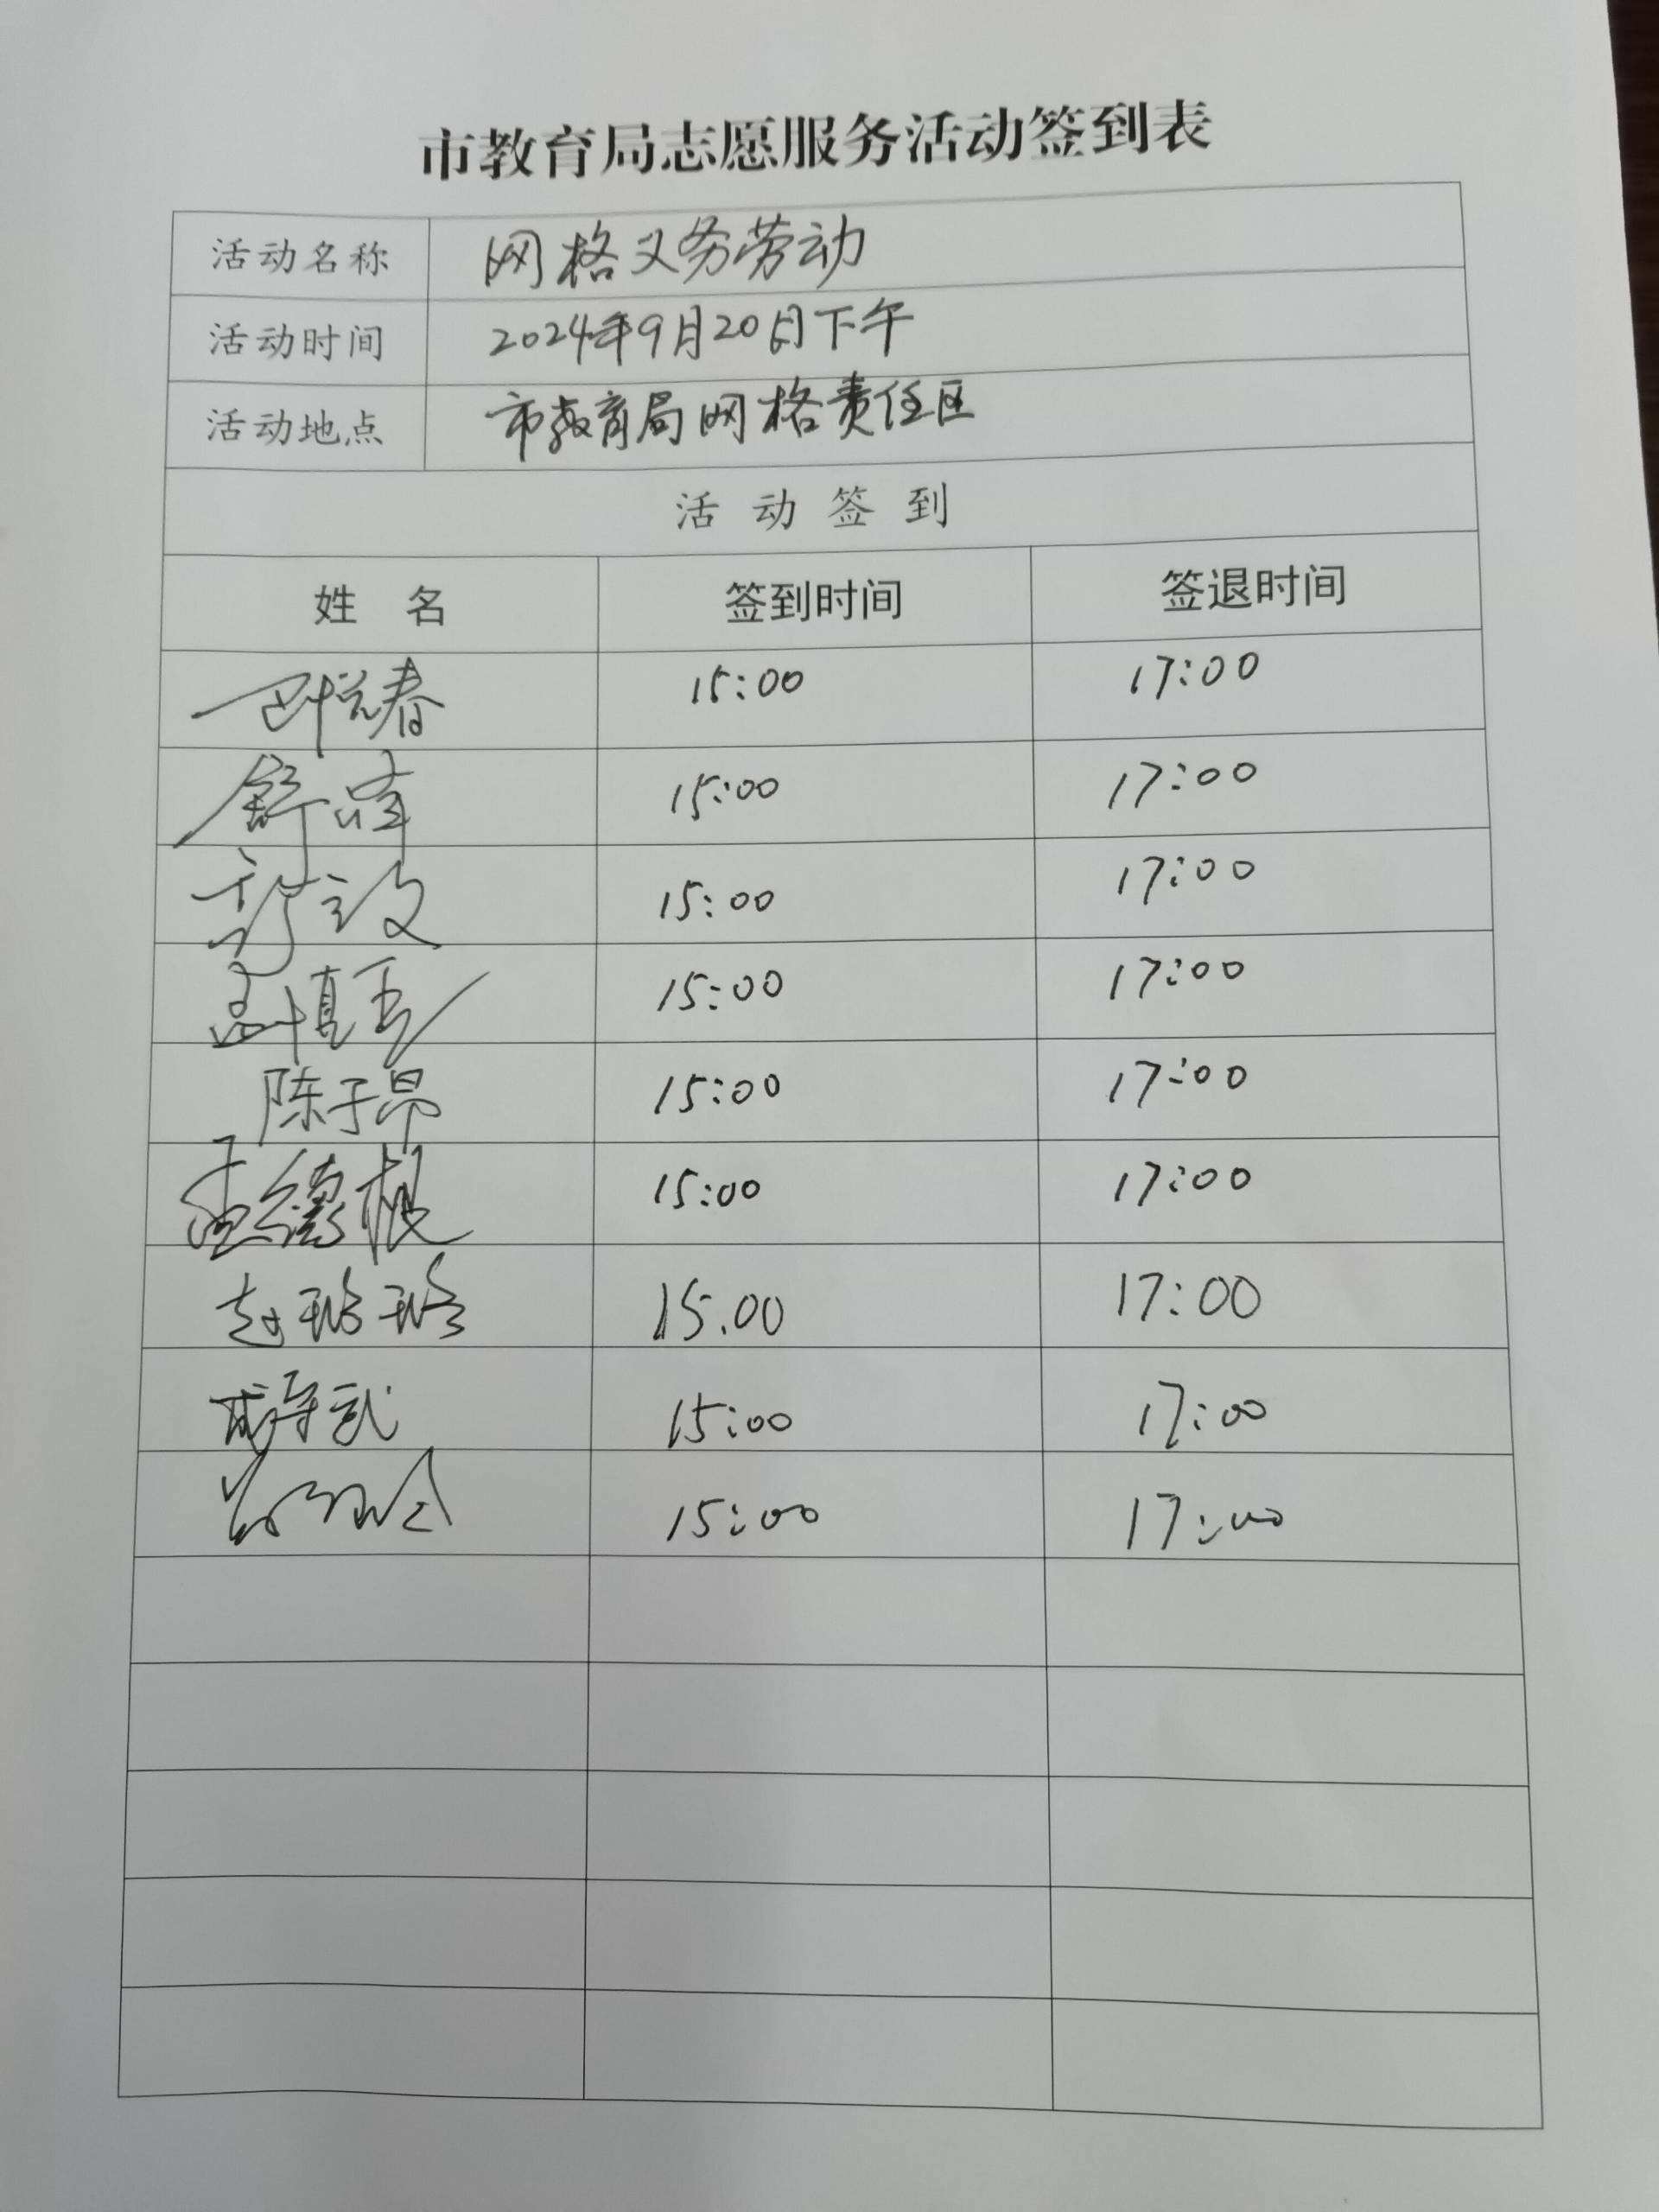 市教育局志愿服务活动签到表
活动名称 网格义务劳动
活动时间 2024年9月20日下午
活动地点 市教育局网格责任区
活动签到
姓 名 签到时间 签退时间
15:00 17:00
舒峰 15:00 17:00
15:00 17:00
孟慎玉 15:00 17:00
陈子昂 15:00 17:00
孟德根 15:00 17:00
赵璐璐 15.00 17:00
戚守武 15:00 17:00
15:00 17:00